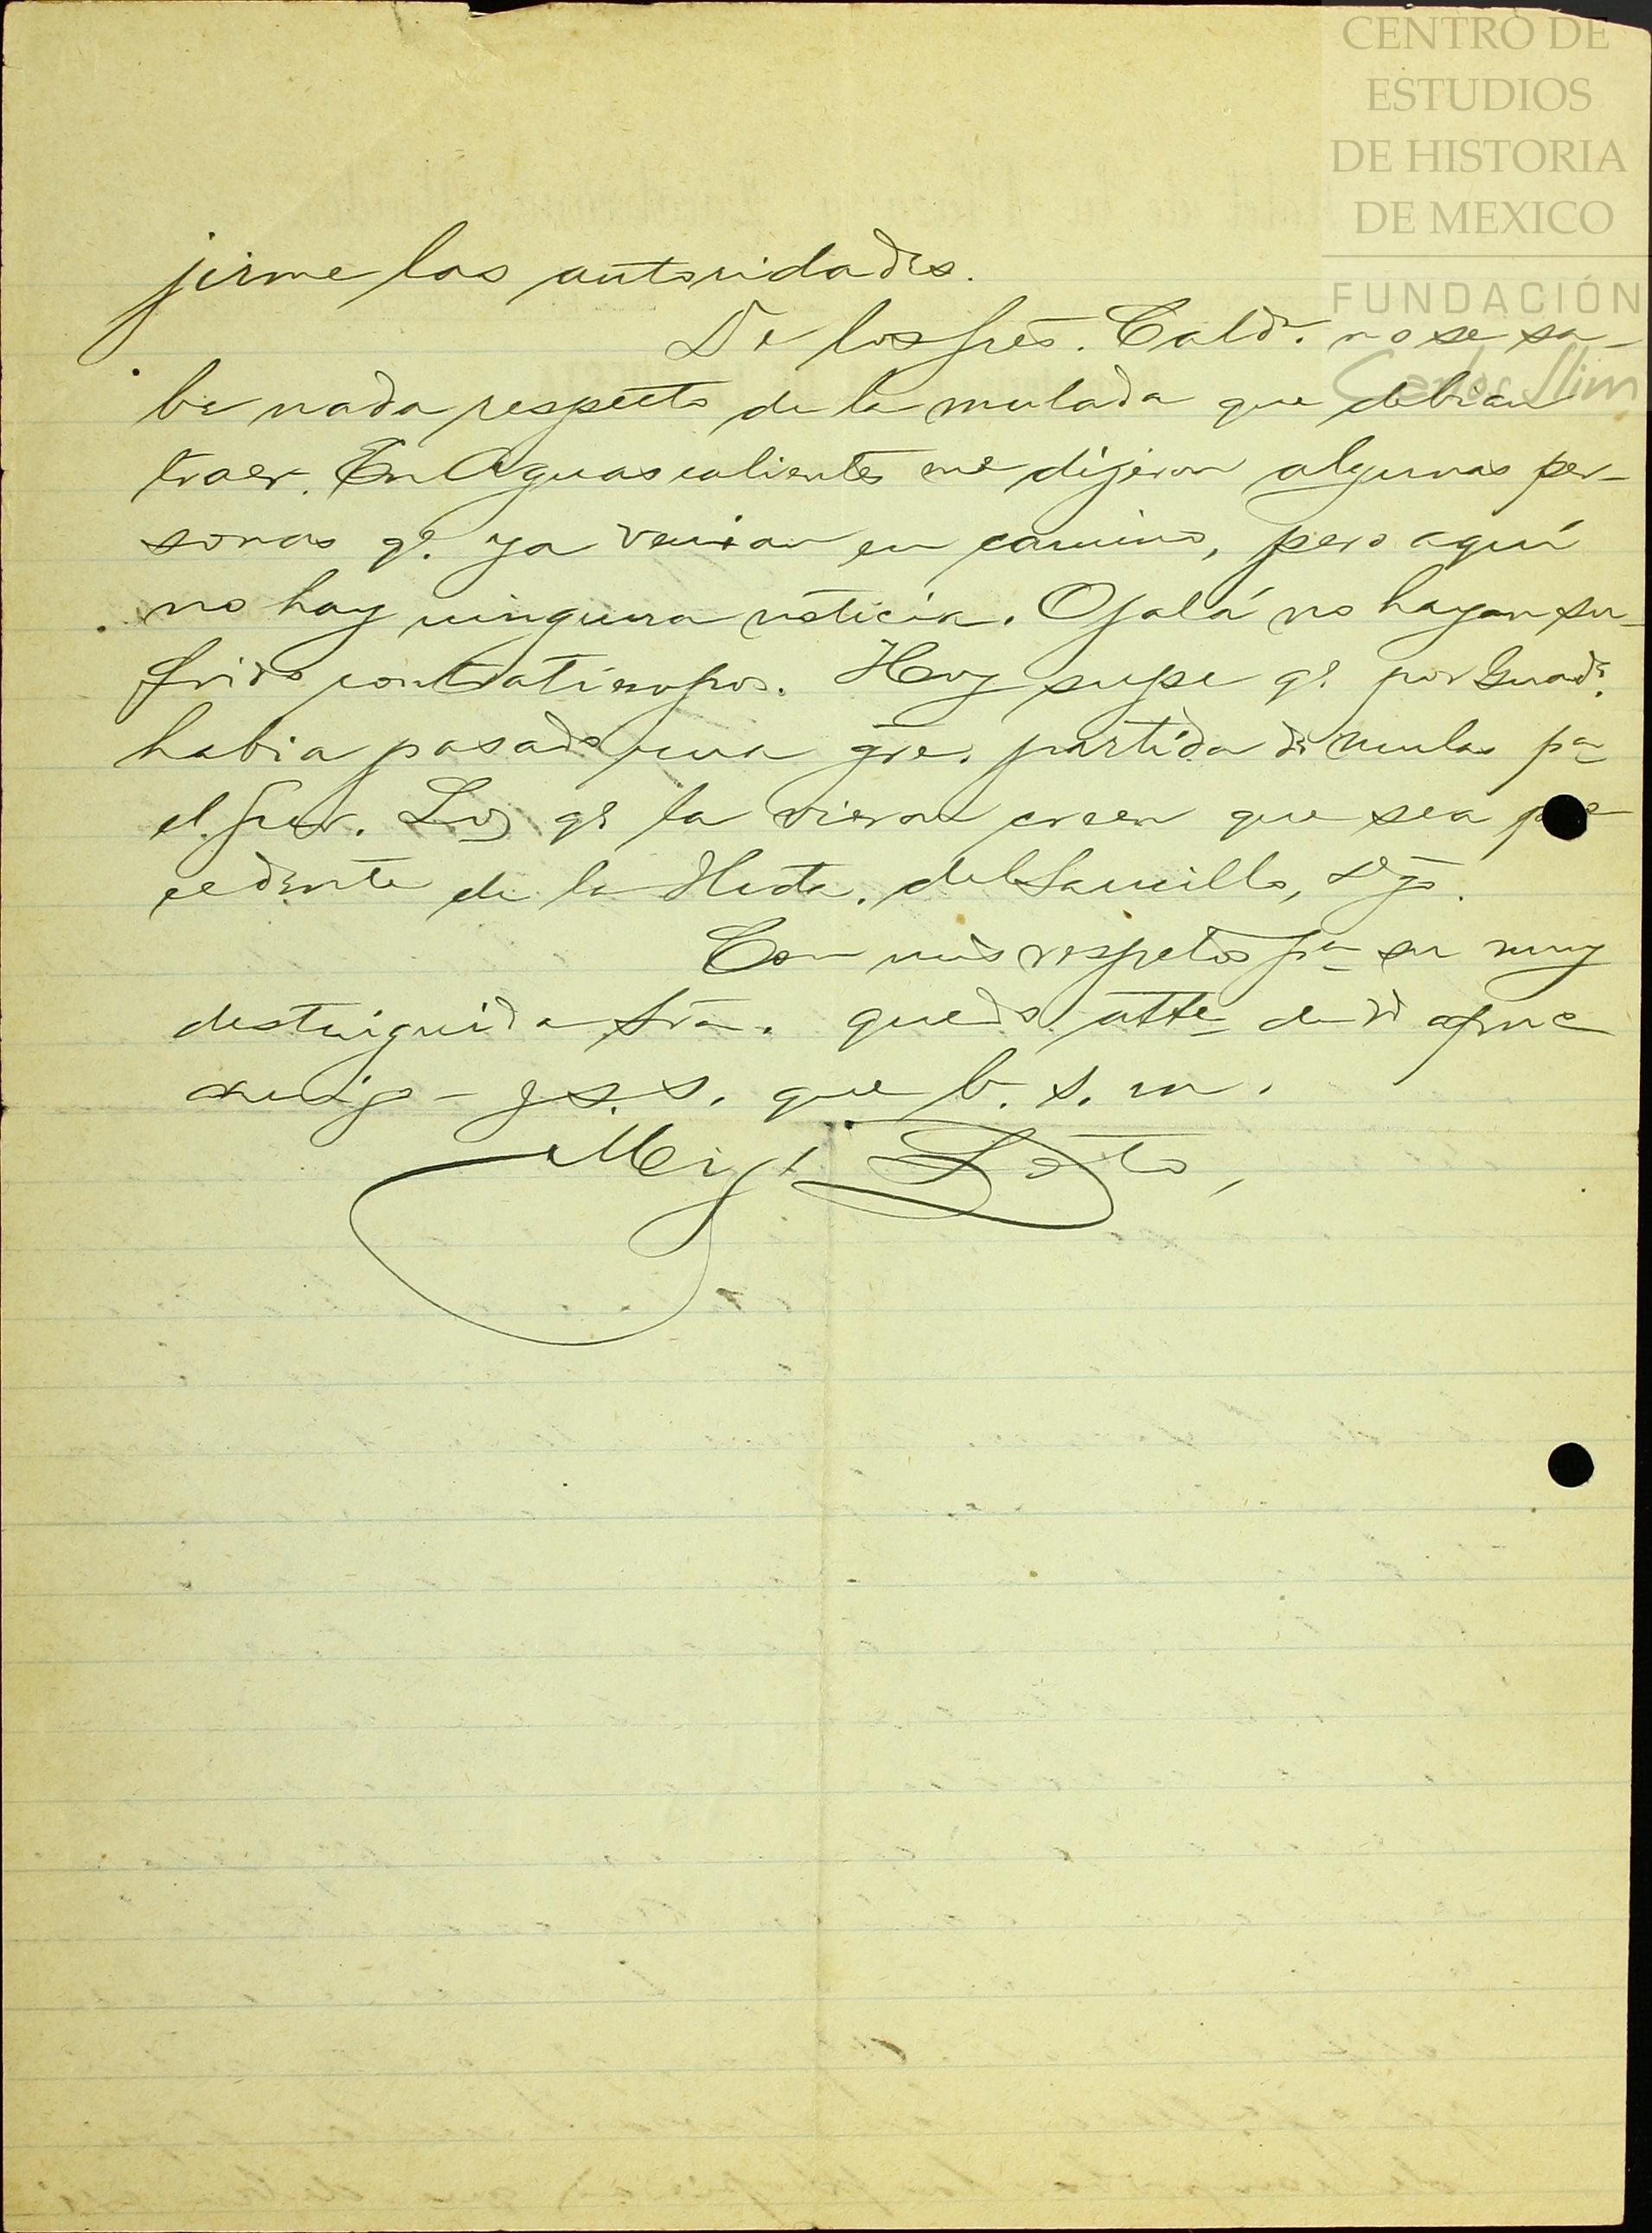 CENTRO DE
ESTUDIOS
DE HISTORIA
DE MEXICO
FUNDACIÓN
Carlos Slim
jirme las autoridades.
De los Sres. Cald.ⁿ no se sa-
be nada respecto de la mulada que debian
traer. En Aguascalientes me dijeron algunas per-
sonas qᵉ. ya venian en camino, pero aquí
no hay ninguna noticia. Ojalá no hayan su-
frido contratiempos. Hoy supe qᵉ por Guadᵃ.
habia pasado una gde. partida de mulas pᵃ
el Sur. Los qᵉ la vieron creen que sea
cedente de la Hcda. del Saucillo, Dgo.
Con mis respetos pᵃ su muy
destinguida Sra. quedo atte de Vd afmo
amigo - y s.s. que b. s. m.
Migˡ Soto,